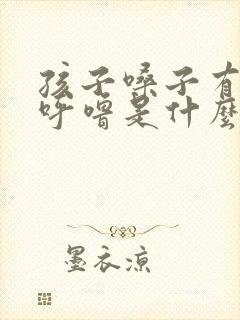 孩子嗓子有
呼噜是什麼
墨衣凉